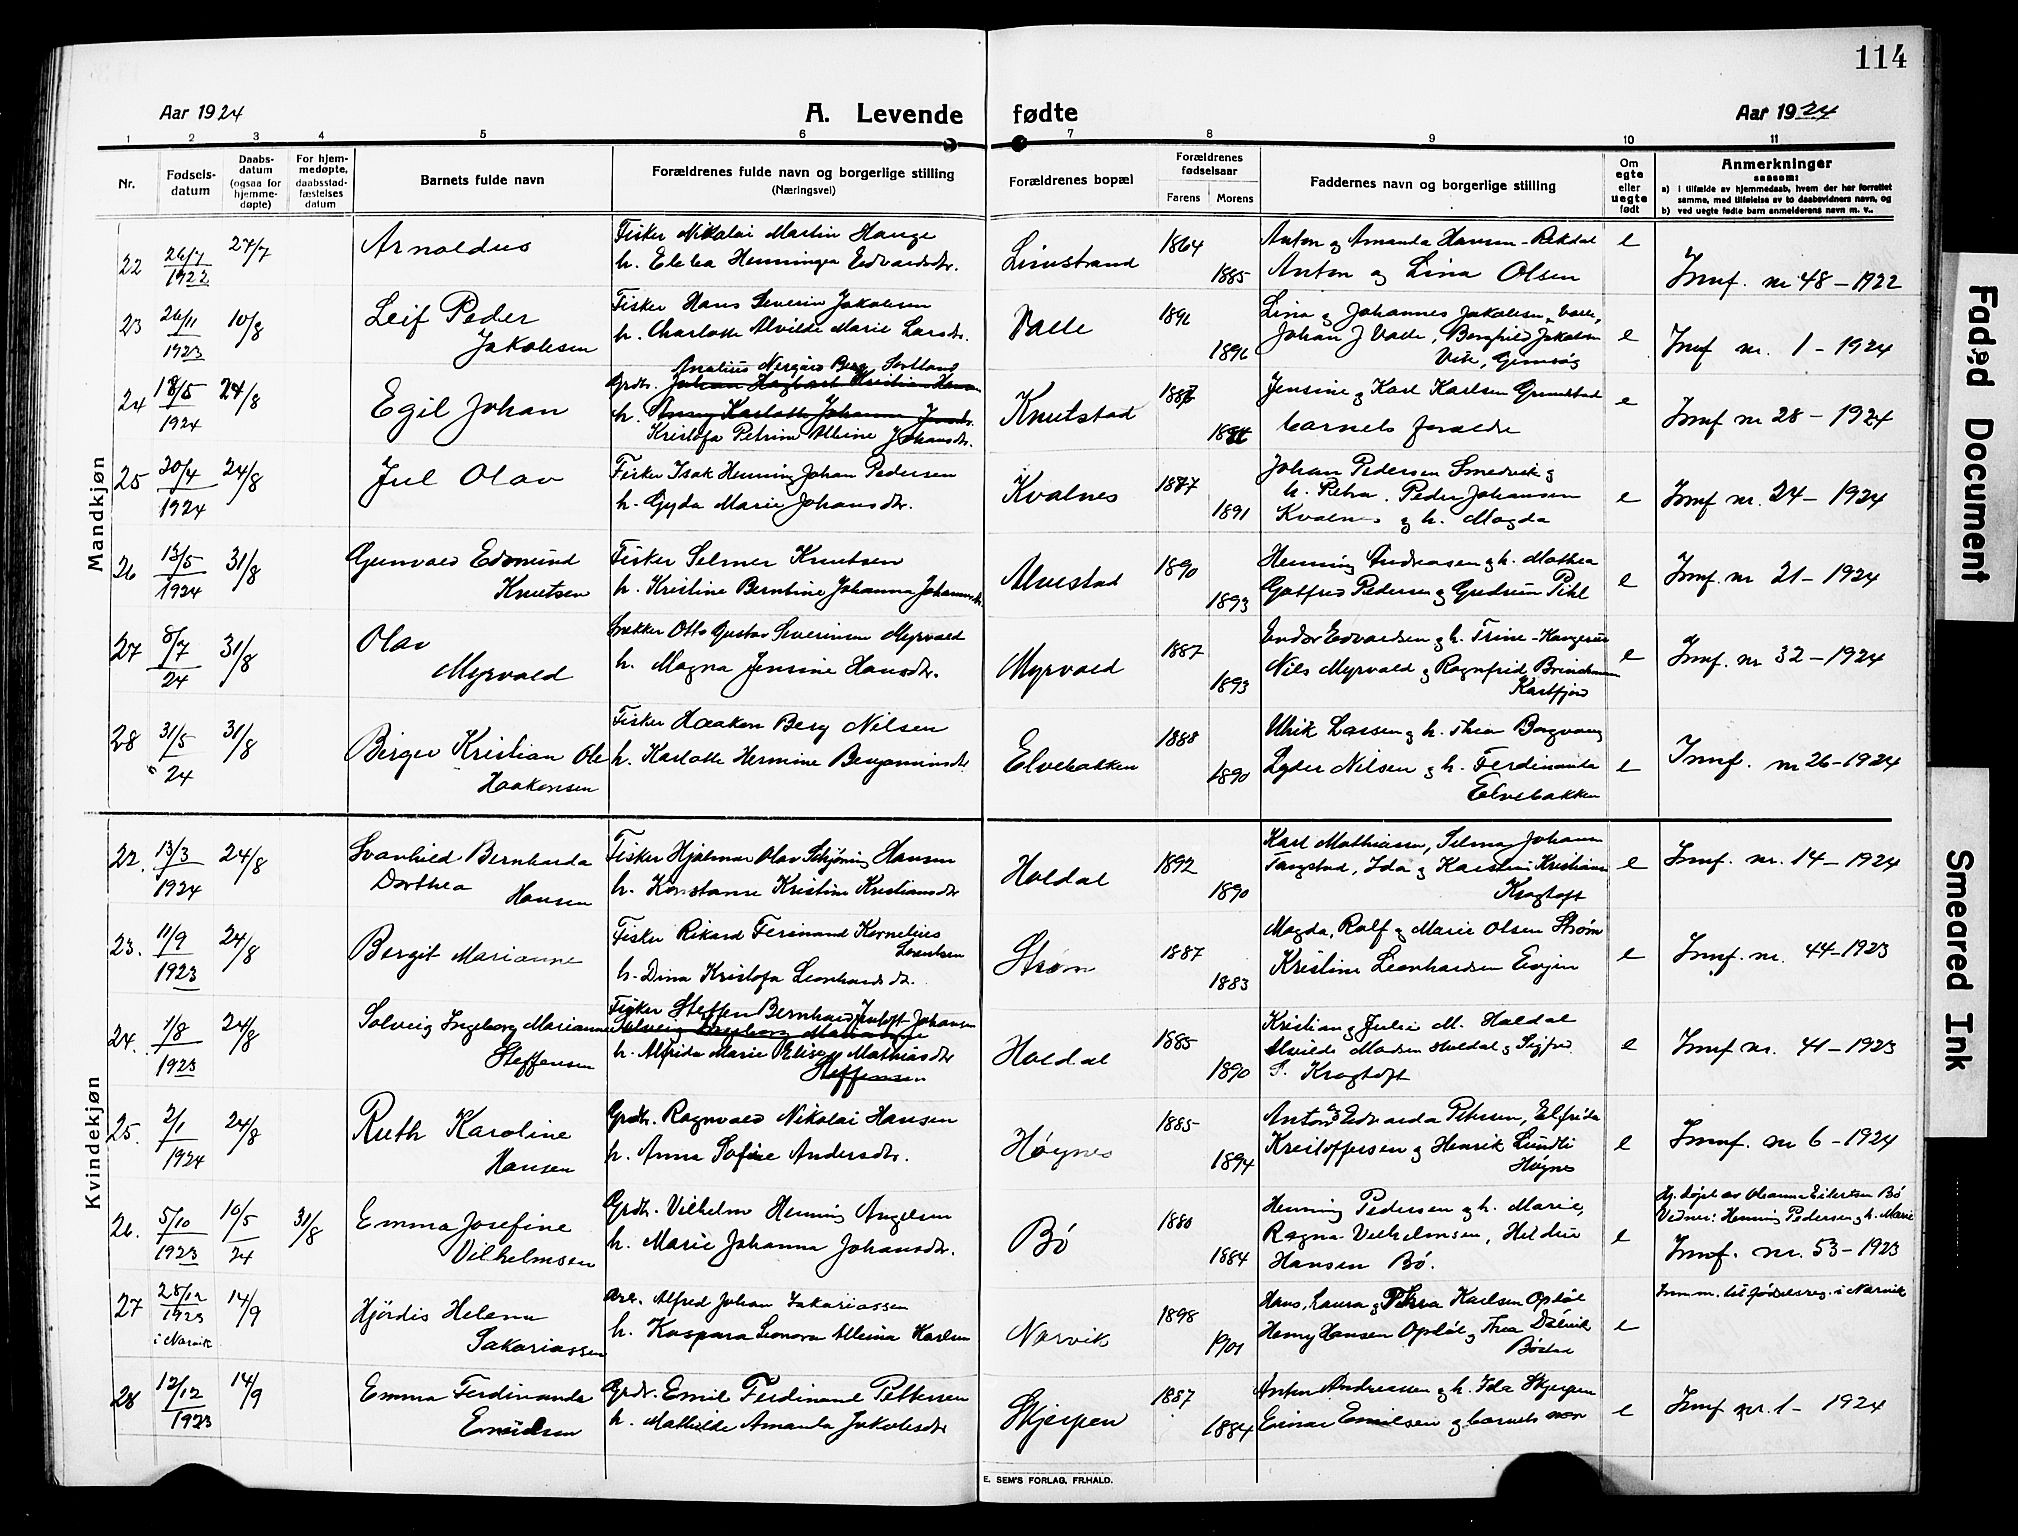 114
Aar 1924
A. Levende fødte
Aar 1924
1 2 3 4 5 6 7 8 9 10 11
Nr.
Fødsels-
datum
Daabs-
datum
(ogsaa for
hjemme-
døpte)
For hjem-
medøpte,
daabsstad-
fæstelses
datum
Barnets fulde navn
Forældrenes fulde navn og borgerlige stilling
(Næringsvei)
Forældrenes bopæl
Forældrenes
fødselsaar
Farens Morens
Faddernes navn og borgerlige stilling
Om
egte
eller
uegte
født
Anmerkninger
saasom:
a) i tilfælde av hjemmedaab, hvem der har forrettet
samme, med tilføielse av to daabsvidners navn, og
b) ved uegte fødte barn anmelderens navn m. v..
Mandkjøn
22 26/7 1922 27/7
Arnoldus
Fisker Nikolai Martin Hauge
h. Elela Henninga Edvardsdtr.
Limstrand
1864
1885
Anton og Amanda Hansen - Rekdal
Anton og Lina Olsen
e
Innf. nr 48 - 1922
23 26/11 1923 10/8
Leif Peder
Jakobsen
Fisker Hans Severin Jakobsen
h. Charlotte Alvilde Marie Larsdtr.
Valle
1896
1896
Lina og Johannes Jakobsen, Valle,
Johan J Valle, Borgfrid Jakobsen
Vik, Gimsøy
e
Innf nr. 1 - 1924
24 18/5 1924 24/8
Egil Johan
Analius Nergård Berg Sortland
Grdbr. Johan Hagbart Kristian Hansen
h. Anny Karlotte Johanna Jensdtr.
Kristofa Petrine Alvine Johansdtr.
Knutstad
1887
Jensine og Karl Karlsen Grundstad
barnets forældre
e
Innf nr 28 - 1924
25 20/4 1924 24/8
Jul Olav
Fisker Isak Henning Johan Pedersen
h. Gyda Marie Johansdtr.
Kvalnes
1887
1891
Johan Pedersen Smedvik og
h. Petra. Peder Johansen
Kvalnes og h. Magda
e
Innf nr. 24 - 1924
26 13/5 1924 31/8
Gunvald Edmund
Knutsen
Fisker Selmer Knutsen
h. Kristine Berntine Johanna Johannesdtr.
Alvestad
1890
1893
Henning Andreasen og h. Mathea
Gotfred Pedersen og Gudrun Pihl
e
Innf. nr 21 - 1924
27 8/7 24 31/8
Olav
Myrvold
Snekker Otto Gustav Severinsen Myrvold
h. Magna Jensine Hansdtr.
Myrvold
1887
1893
Endor Edvardsen og h. Trine - Kangerur
Nils Myrvold og Ragnfrid Brinchmann
Kartfjord
e
Innf. nr 32 - 1924
28 31/5 24 31/8
Birger Kristian Ole
Haakonsen
Fisker Haakon Berg Nilsen
h. Karlotte Hermine Benjaminsdtr.
Elvebakken
1888
1890
Ulrik Larsen og h. Thea Borgvaag
Lyder Nilsen og h. Ferdinanda
Elvebakken
e
Innf. nr 26 - 1924
Kvindekjøn
22. 13/3 1924 24/8
Svanhild Bernharda
Dorthea
Hansen
Fisker Hjalmar Olav Schjøning Hansen
h. Konstanse Kristine Kristiansdtr
Holdal
1892
1890
Karl Mathiassen, Selma Johansen
Tangstad, Ida og Karstein Kristiansen
Kragtoft
e
Innf. nr. 14 - 1924
23. 11/9 1923 24/8
Bergit Marianne
Fisker Rikard Ferinand Kornelius
Lorentsen
h. Dina Kristofa Leonhardsdtr.
Strøm
1887
1883
Magda, Rolf og Marie Olsen Strøm
Kristine Leonhardsen Evjen
e
Innf. nr. 44 - 1923
24. 1/8 1923 24/8
Solveig Ingeborg Marianne
Steffensen
Fisker Steffen Bernhard Jentoft Johansen
Solveig Ingeborg Marianne
h. Alfrida Marie Elise Mathiasdtr
Steffensen
Holdal
1885
1890
Kristian og Julie M. Holdal
Alvilde Madsen Holdal og Sigfred
S. Kragtoft
e
Innf nr. 41 - 1923
25. 2/1 1924 24/8
Ruth Karoline
Hansen
Grdbr. Ragnvald Nikolai Hansen
h. Anna Sofie Andersdtr.
Høynes
1885
1894
Anton og Edvarda Petersen, Elfrida
Kristoffersen og Henrik Lundli
Høynes
e
Innf. nr 6 - 1924
26. 5/10 1923 10/5 24 31/8
Emma Josefine
Vilhelmsen
Grdbr. Vilhelm Henning Angelsen
h. Marie Johanna Johansdtr.
Bø
1880
1884
Henning Pedersen og h. Marie,
Ragna Vilhelmsen, Hildur
Hansen Bø.
e
Hj. døpt av Johanna Eilertsen Bø
Vidner: Henning Pedersen og h. Marie
Innf. nr. 53 - 1923
27 28/12 1923 i Narvik 14/9
Hjørdis Helene
Sakariassen
Arb. Alfred Johan Sakariassen
h. Kaspara Leonora Alvina Karlsen
Narvik
1898
1901
Hans, Laura og Petra Karlsen Opdøl
Henry Hansen Opdøl og Thea Dalvik
Bøstad
e
Innm. til fødselsreg. i Narvik
28 12/12 1923 14/9
Emma Ferdinanda
Emilsen
Grdbr. Emil Ferdinand Pettersen
h. Mathilde Amanda Jakobsdtr
Skjerpen
1887
1884
Anton Andreassen og h. Ida Skjerpen
Einar Emilsen og barnets mor
e
Innf nr. 1 - 1924
E. SEM'S FORLAG, FR.HALD.
Faded Document
Smeared Ink